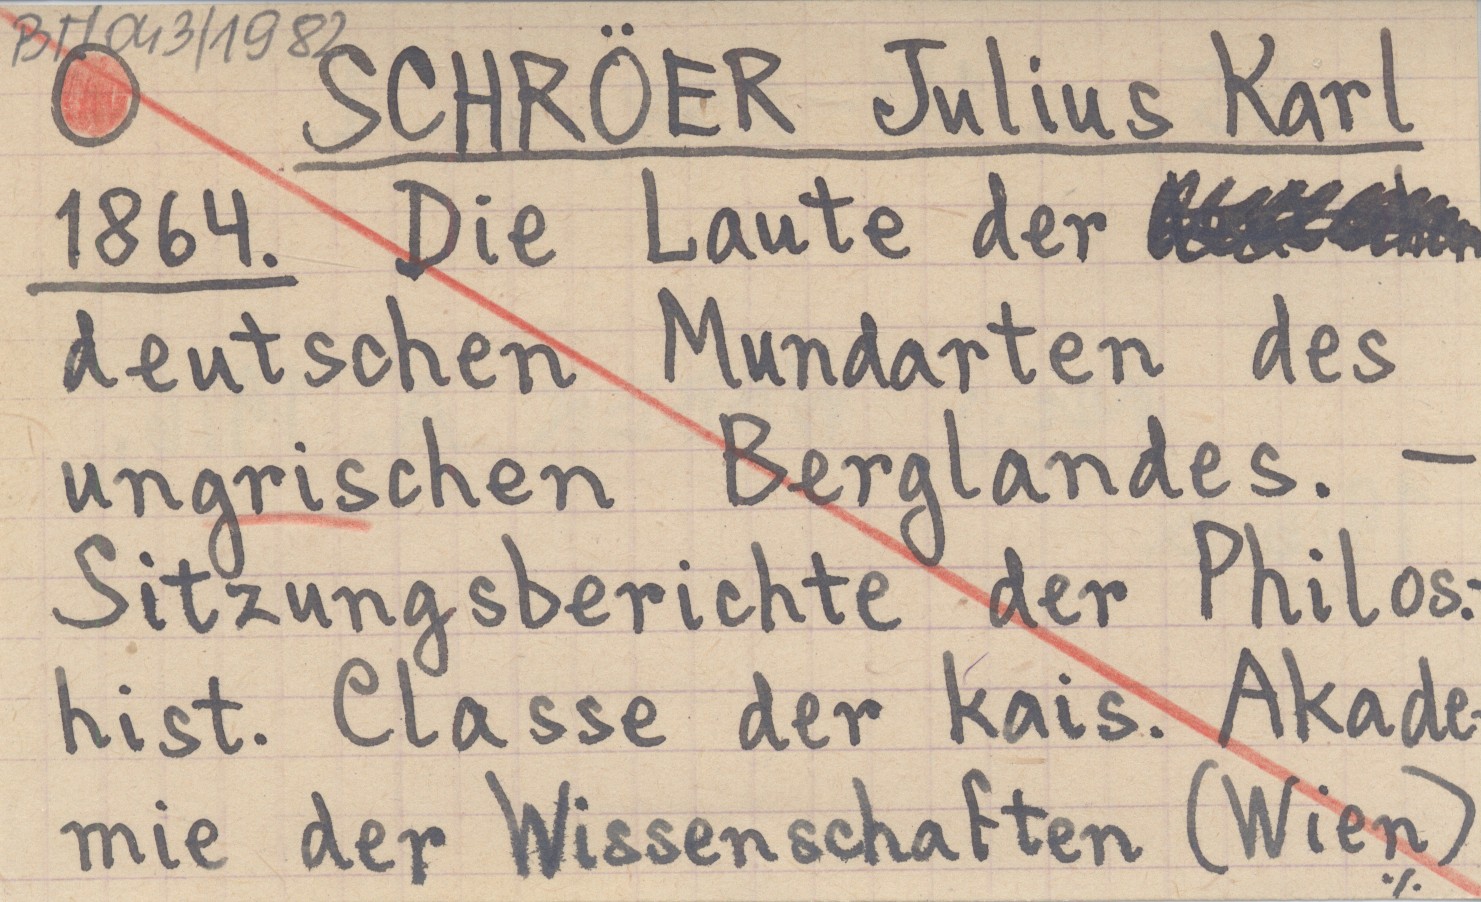 BI/043/1982
SCHRÖER Julius Karl
1864. Die Laute der
deutschen Mundarten des
ungrischen Berglandes. –
Sitzungsberichte der Philos.-
hist. Classe der kais. Akade-
mie der Wissenschaften (Wien)
./.